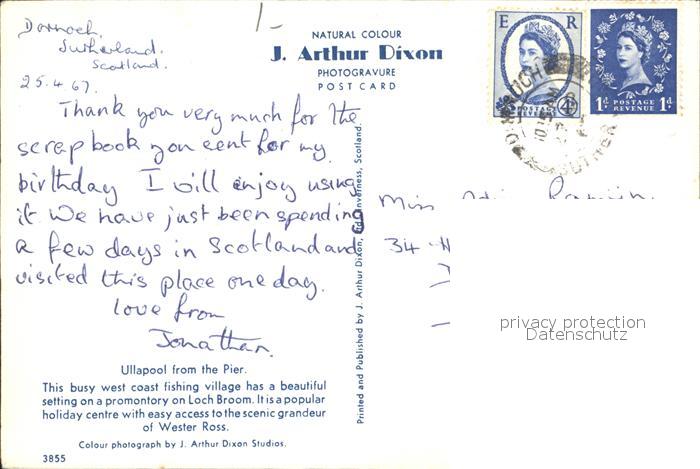 Dornoch,
Sutherland.
Scotland.
25.4 67.
1/-
Thank you very much for the
scrap book you sent for my
birthday I will enjoy using
it We have just been spending
a few days in Scotland and
visited this place one day.
love from
Jonathan.
Ullapool from the Pier.
This busy west coast fishing village has a beautiful
setting on a promontory on Loch Broom. It is a popular
holiday centre with easy access to the scenic grandeur
of Wester Ross.
Colour photograph by J. Arthur Dixon Studios.
3855
NATURAL COLOUR
J. Arthur Dixon
PHOTOGRAVURE
POST CARD
Printed and Published by J. Arthur Dixon, Inverness, Scotland.
E R
POSTAGE
REVENUE
4D
1D POSTAGE 1D
REVENUE
Miss
34
privacy protection
Datenschutz